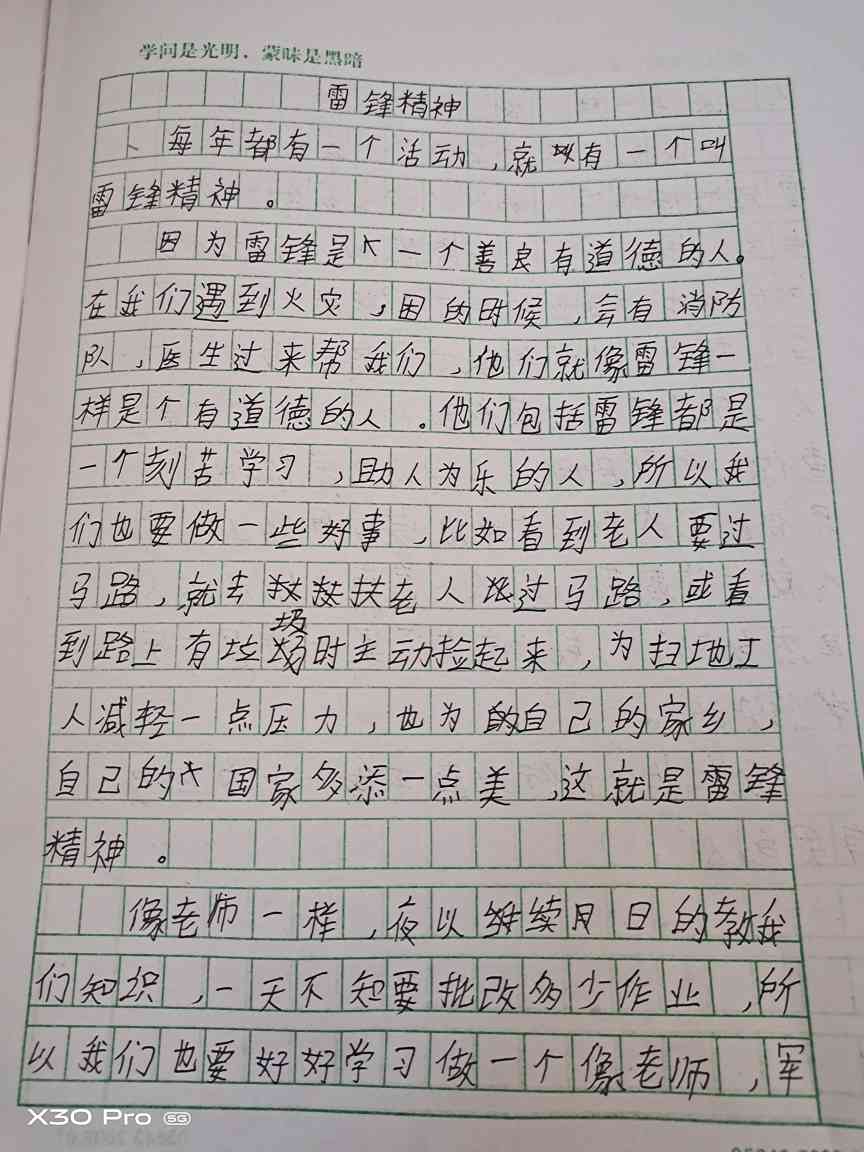 学问是光明，蒙昧是黑暗
雷锋精神
、每年都有一个活动，就叫有一个叫
雷锋精神。
因为雷锋是大一个善良有道德的人。
在我们遇到火灾，困的时候，会有消防
队，医生过来帮我们，他们就像雷锋一
样是个有道德的人。他们包括雷锋都是
一个刻苦学习，助人为乐的人，所以我
们也要做一些好事，比如看到老人要过
马路，就去扶扶扶老人过马路，或看
到路上有垃圾时主动捡起来，为扫地工
人减轻一点压力，也为的自己的家乡，
自己的大国家多添一点美，这就是雷锋
精神。
像老师一样，夜以继续月日的教我
们知识，一天不知要批改多少作业，所
以我们也要好好学习做一个像老师，军
X30 Pro 5G